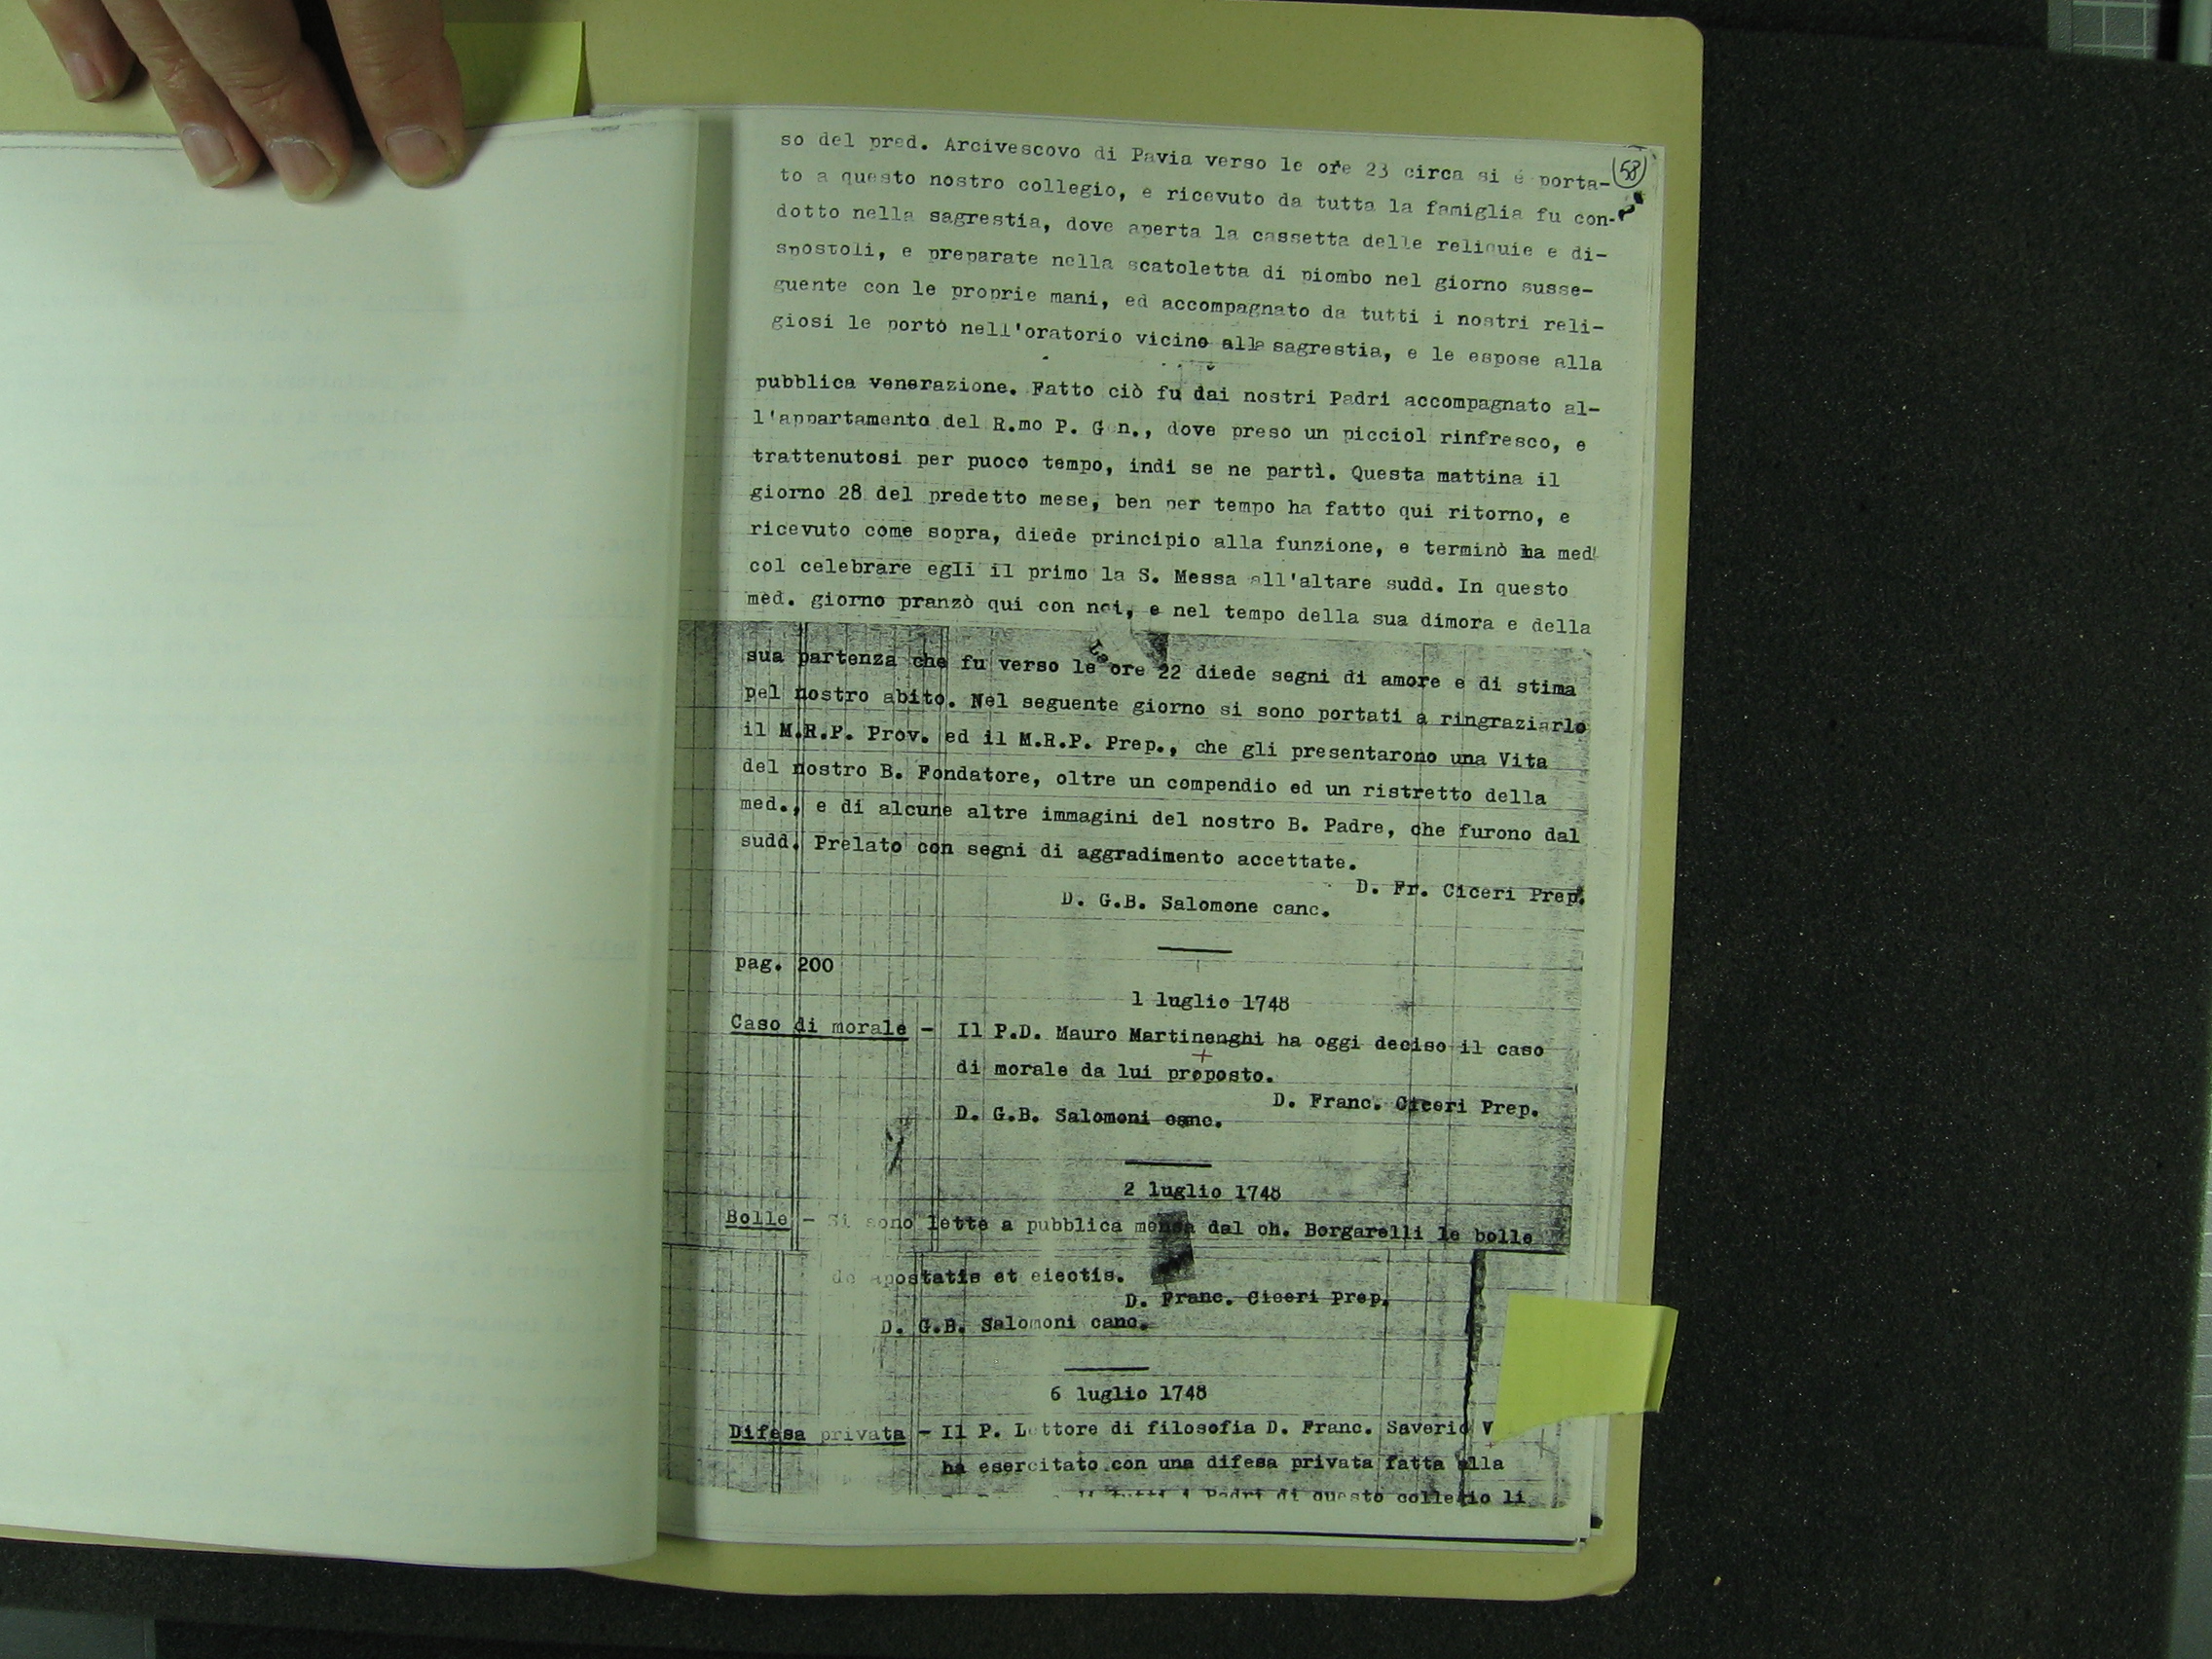 58
so del pred. Arcivescovo di Pavia verso le ore 23 circa si é porta-
to a questo nostro collegio, e ricevuto da tutta la famiglia fu con-
dotto nella sagrestia, dove aperta la cassetta delle reliquie e di-
spostoli, e preparate nella scatoletta di piombo nel giorno susse-
guente con le proprie mani, ed accompagnato da tutti i nostri reli-
giosi le portò nell'oratorio vicino alla sagrestia, e le espose alla
pubblica venerazione. Fatto ciò fu dai nostri Padri accompagnato al-
l'appartamento del R.mo P. Gen., dove preso un picciol rinfresco, e
trattenutosi per puoco tempo, indi se ne partì. Questa mattina il
giorno 28 del predetto mese, ben per tempo ha fatto qui ritorno, e
ricevuto come sopra, diede principio alla funzione, e terminò la med
col celebrare egli il primo la S. Messa all'altare sudd. In questo
med. giorno pranzò qui con noi, e nel tempo della sua dimora e della
sua partenza che fu verso le ore 22 diede segni di amore e di stima
pel nostro abito. Nel seguente giorno si sono portati a ringraziarlo
il M.R.P. Prov. ed il M.R.P. Prep., che gli presentarono una Vita
del nostro B. Fondatore, oltre un compendio ed un ristretto della
med., e di alcune altre immagini del nostro B. Padre, che furono dal
sudd. Prelato con segni di aggradimento accettate.
D. Fr. Ciceri Prep.
D. G.B. Salomone canc.
pag. 200
1 luglio 1748
Caso di morale - Il P.D. Mauro Martinenghi ha oggi deciso il caso
di morale da lui proposto.
D. Franc. Ciceri Prep.
D. G.B. Salomoni canc.
2 luglio 1748
Bolle - Si sono lette a pubblica mensa dal ch. Borgarelli le bolle
de apostatis et eiectis.
D. Franc. Ciceri Prep.
D. G.B. Salomoni canc.
6 luglio 1748
Difesa privata - Il P. Lettore di filosofia D. Franc. Saverio V
ha esercitato con una difesa privata fatta alla
tutti i Padri di questo collegio li